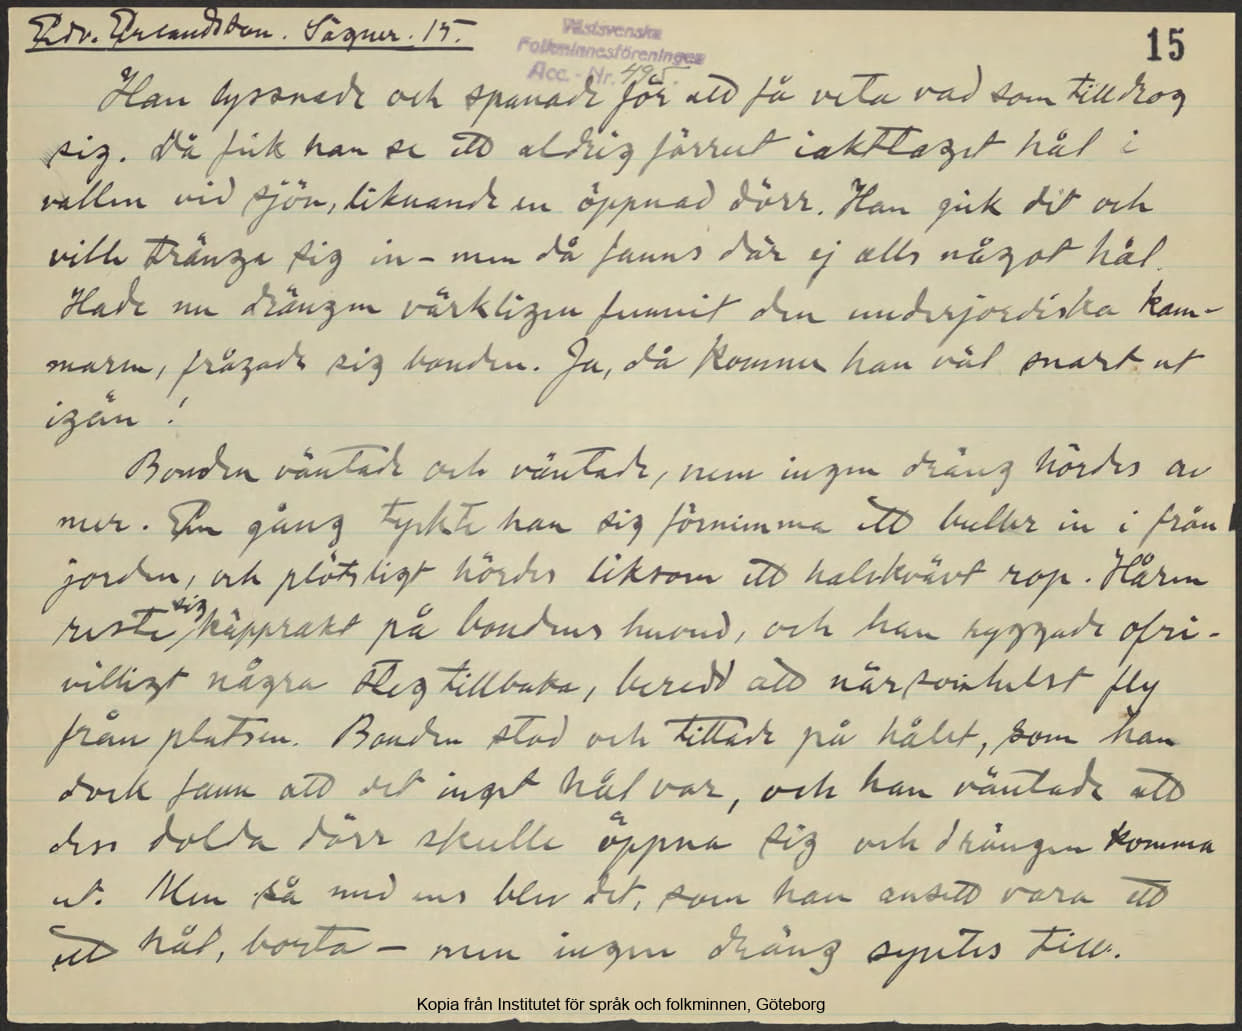 Edv. Erlandsson. Sägner. 15.
Västsvenska
Folkminnesföreningen
Acc. - Nr. 495.
15
Han lyssnade och spanade för att få veta vad som tilldrog
sig. Då fick han se ett aldrig förrut iakttaget hål i
vallen vid sjön, liknande en öppnad dörr. Han gick dit och
ville tränga sig in – men då fanns där ej alls något hål.
Hade nu drängen värkligen funnit den underjordiska kam-
maren, frågade sig bonden. Ja, då kommer han väl snart ut
igän!
Bonden väntade och väntade, men ingen dräng hördes av
mer. En gång tyckte han sig förnimma ett buller in i från
jorden, och plötsligt hördes liksom ett halvkvävt rop. Håren
reste sig käpprakt på bondens huvud, och han ryggade ofri-
villigt några steg tillbaka, beredd att närsomhelst fly
från platsen. Bonden stod och tittade på hålet, som han
dock fann att det inget hål var, och han väntade att
dess dolda dörr skulle öppna sig och drängen komma
ut. Men så med ens blev det, som han ansett vara ett
ett hål, borta – men ingen dräng syntes till.
Kopia från Institutet för språk och folkminnen, Göteborg